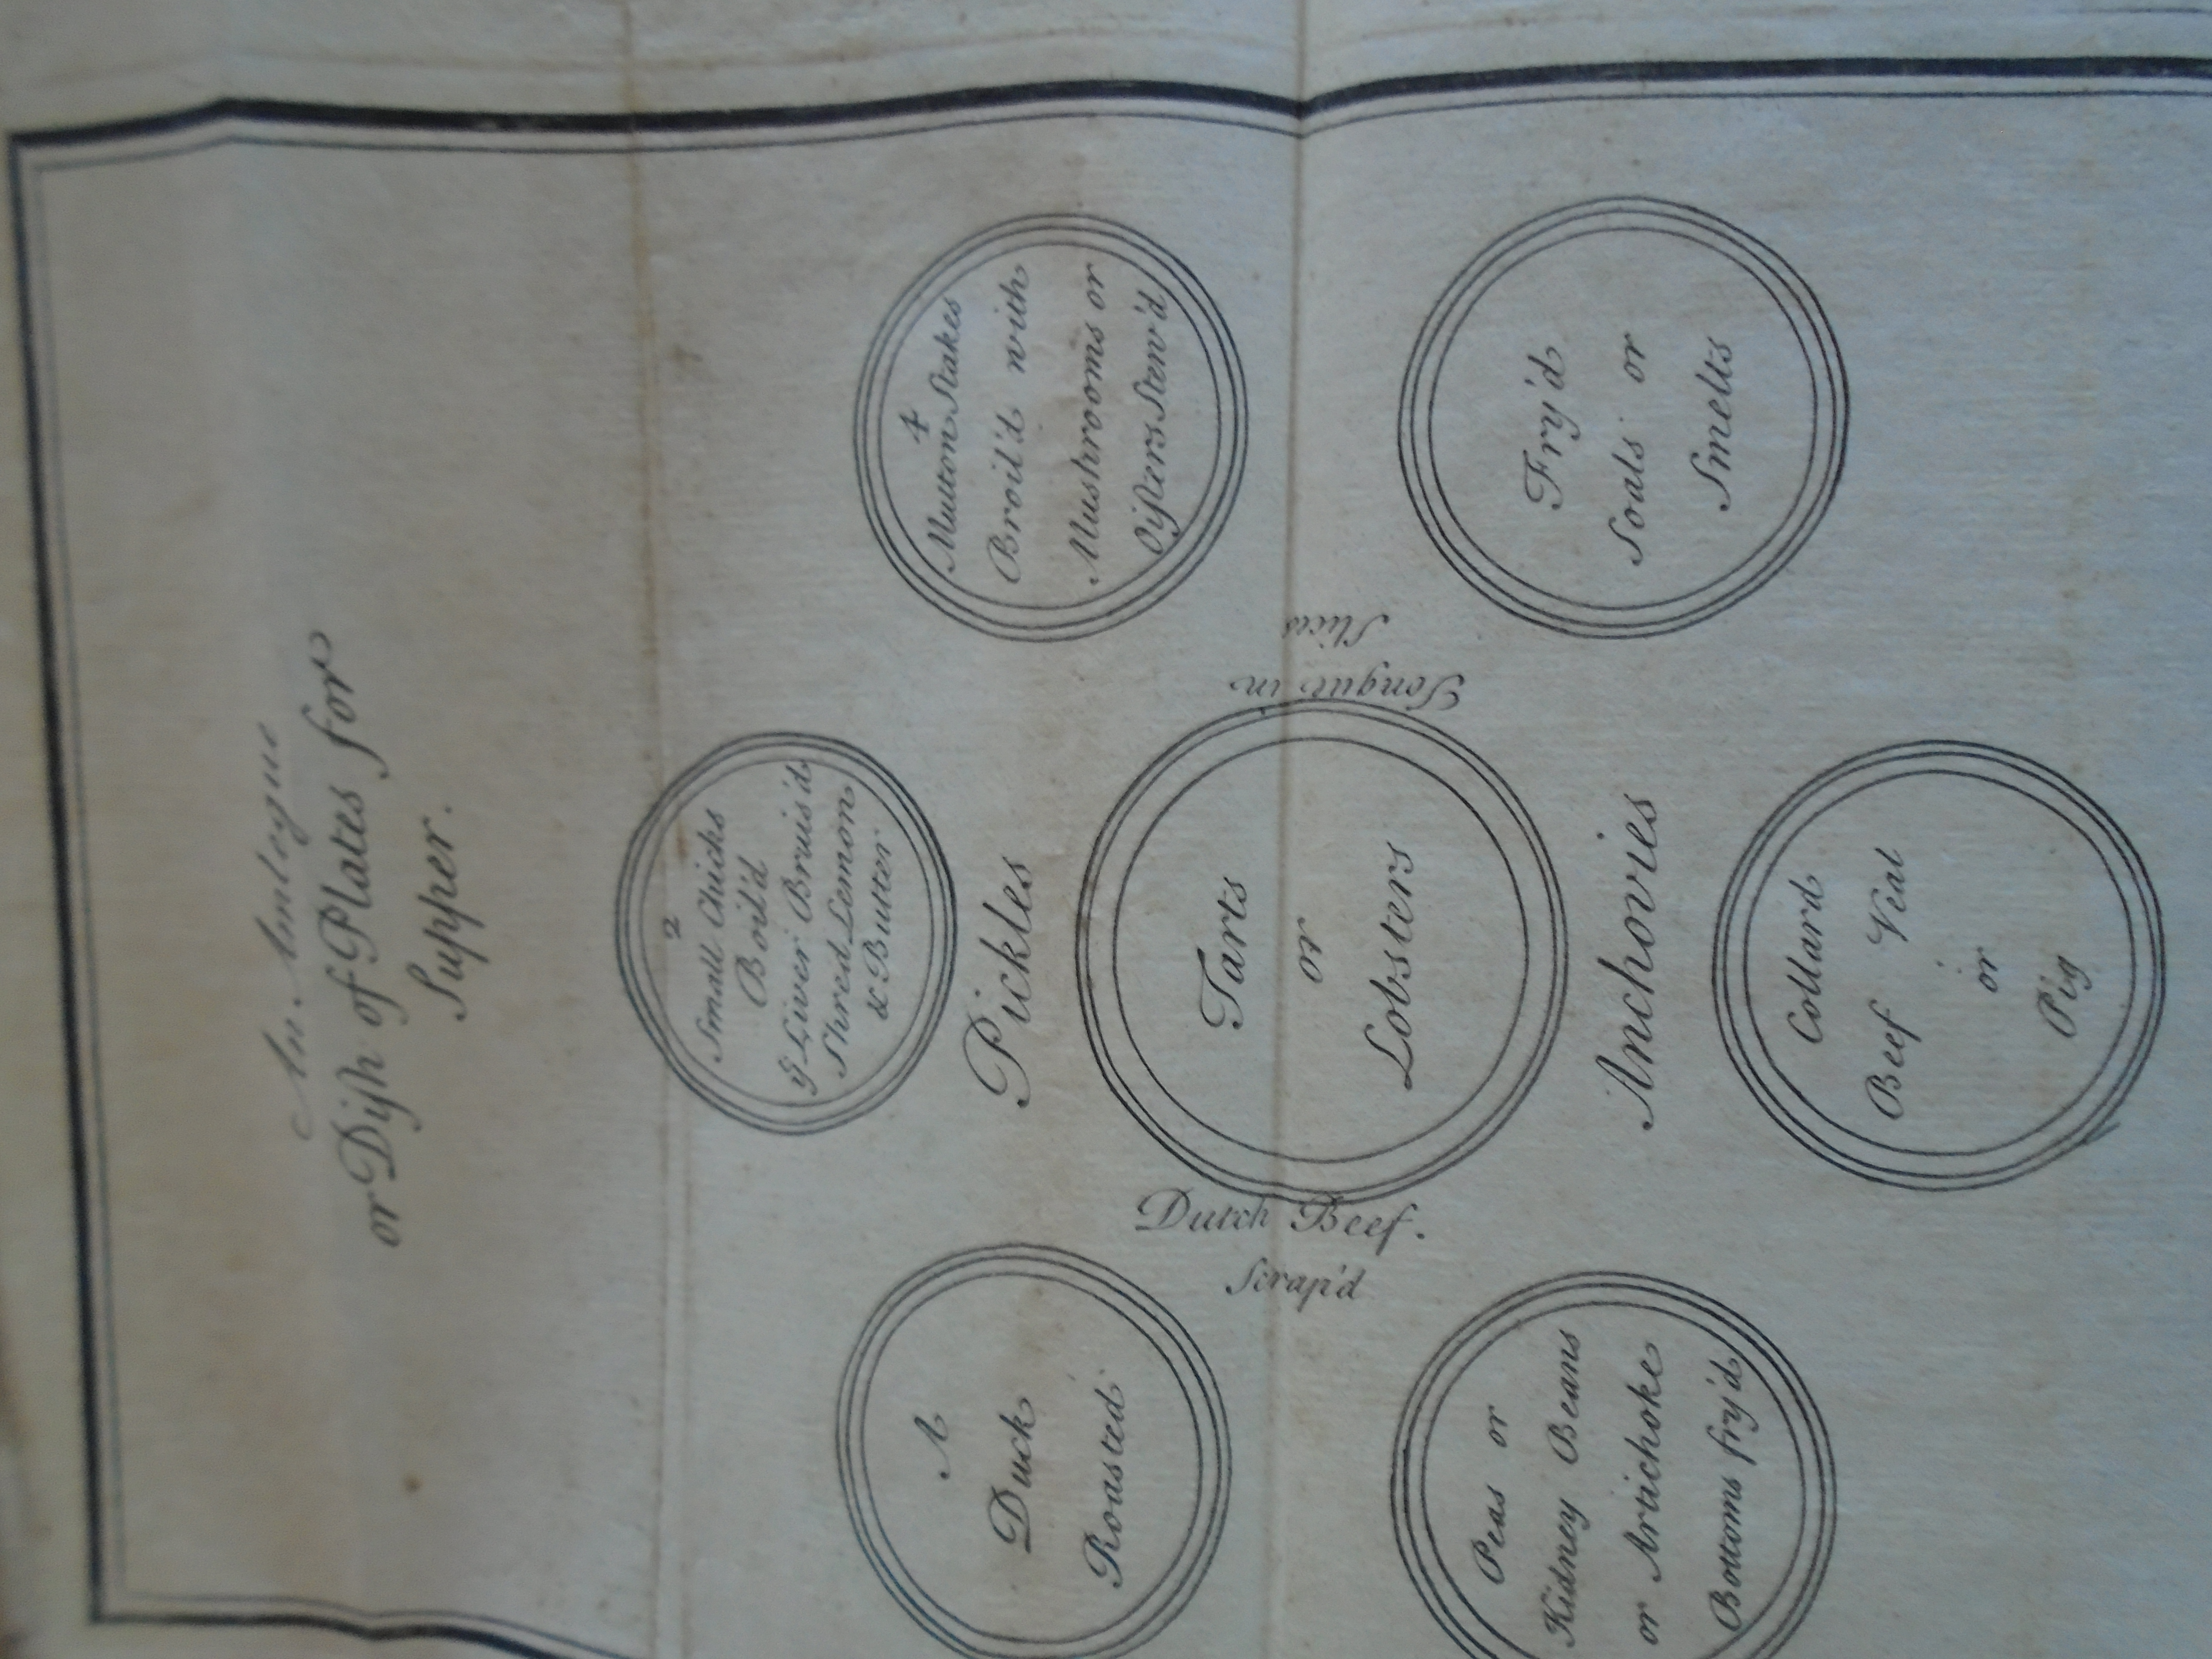 An Ambegue
or Dish of Plates for
Supper.
2
Small Chicks
Boil'd
ye Liver Bruis'd
Shred Lemon
& Butter
A
Duck
Roasted
Pickles
4
Mutton Stakes
Broil'd with
Mushrooms or
Oisters Stew'd
Dutch Beef.
Scrap'd
Tarts
or
Lobsters
Tongue in
Slices
Anchovies
Peas or
Kidney Beans
or Artichoke
Bottoms fry'd
Fry'd
Soals or
Smelts
Collard
Beef Veal
or
Pig